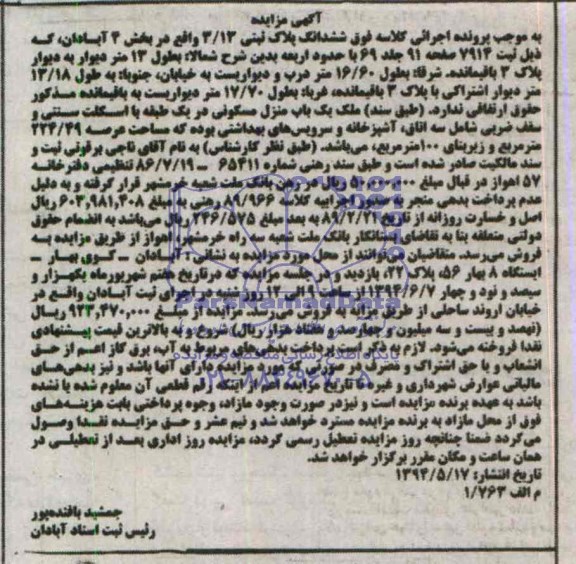 آگهی مزایده
به موجب پرونده اجرائی کلاسه فوق ششدانگ پلاک ثبتی ۳/۱۳ واقع در بخش ۴ آبادان، که
ذیل ثبت ۷۹۱۴ صفحه ۹۱ جلد ۶۹ با حدود اربعه بدین شرح شمالا: بطول ۱۳ متر دیوار به دیوار
پلاک ۳ باقیمانده. شرقا: بطول ۱۶/۶۰ متر درب و دیواریست به خیابان، جنوبا: به طول ۱۳/۱۸
متر دیوار اشتراکی با پلاک ۳ باقیمانده، غربا: بطول ۱۷/۷۰ متر دیواریست به باقیمانده مذکور
حقوق ارتفاقی ندارد. (طبق سند) ملک یک باب منزل مسکونی در یک طبقه با اسکلت سنتی و
سقف ضربی شامل سه اتاق، آشپزخانه و سرویس‌های بهداشتی بوده که مساحت عرصه ۲۲۴/۴۹
مترمربع و زیربنای ۱۰۰مترمربع، می‌باشد. (طبق نظر کارشناس) به نام آقای ناجی برقونی ثبت و
سند مالکیت صادر شده است و طبق سند رهنی شماره ۶۵۴۱۱ ــ ۸۶/۷/۱۹ تنظیمی دفترخانه
۵۷ اهواز در قبال مبلغ ریال در رهن بانک ملت شعبه خرمشهر قرار گرفته و به دلیل
عدم پرداخت بدهی منجر به صدور اجراییه کلاسه ۸۹/۹۶۶ رهنی به مبلغ ۶۰۳,۹۸۱,۴۰۸ ریال
اصل و خسارت روزانه از تاریخ ۸۹/۲/۲۲ به بعد مبلغ ۲۴۶/۵۷۵ ریال می‌باشد به انضمام حقوق
دولتی متعلقه بنا به تقاضای بستانکار بانک ملت شعبه سه راه خرمشهر، اهواز از طریق مزایده به
فروش می‌رسد. متقاضیان می‌توانند از محل مورد مزایده به نشانی ـ آبادان ــ کوی بهار ــ
ایستگاه ۸ بهار ۵۶، پلاک ۲۲، بازدید و در جلسه مزایده که درتاریخ هفتم شهریورماه یکهزار و
سیصد و نود و چهار ۱۳۹۴/۶/۷ از ساعت ۹ الی ۱۲ روز شنبه در اجرای ثبت آبادان واقع در
خیابان اروند ساحلی از طریق مزایده به فروش می‌رسد. مزایده از مبلغ ۹۲۳,۴۷۰,۰۰۰ ریال
(نهصد و بیست و سه میلیون و چهارصد و هفتاد هزار ریال) شروع و به بالاترین قیمت پیشنهادی
نقدا فروخته می‌شود. لازم به ذکر است پرداخت بدهی‌های مربوط به آب، برق گاز اعم از حق
انشعاب و یا حق اشتراک و مصرف در صورتی که مورد مزایده دارای آنها باشد و نیز بدهی‌های
مالیاتی عوارض شهرداری و غیره تا تاریخ مزایده اعم از اینکه رقم قطعی آن معلوم شده یا نشده
باشد به عهده برنده مزایده است و نیزدر صورت وجود مازاد، وجوه پرداختی بابت هزینه‌های
فوق از محل مازاد به برنده مزایده مسترد خواهد شد و نیم عشر و حق مزایده نقدا وصول
می‌گردد ضمنا چنانچه روز مزایده تعطیل رسمی گردد، مزایده روز اداری بعد از تعطیلی در
همان ساعت و مکان مقرر برگزار خواهد شد.
تاریخ انتشار: ۱۳۹۴/۵/۱۷
م الف ۱/۷۶۳
جمشید بافنده‌پور
رئیس ثبت اسناد آبادان
ParsNamadData
پایگاه اطلاع رسانی مناقصه و مزایده